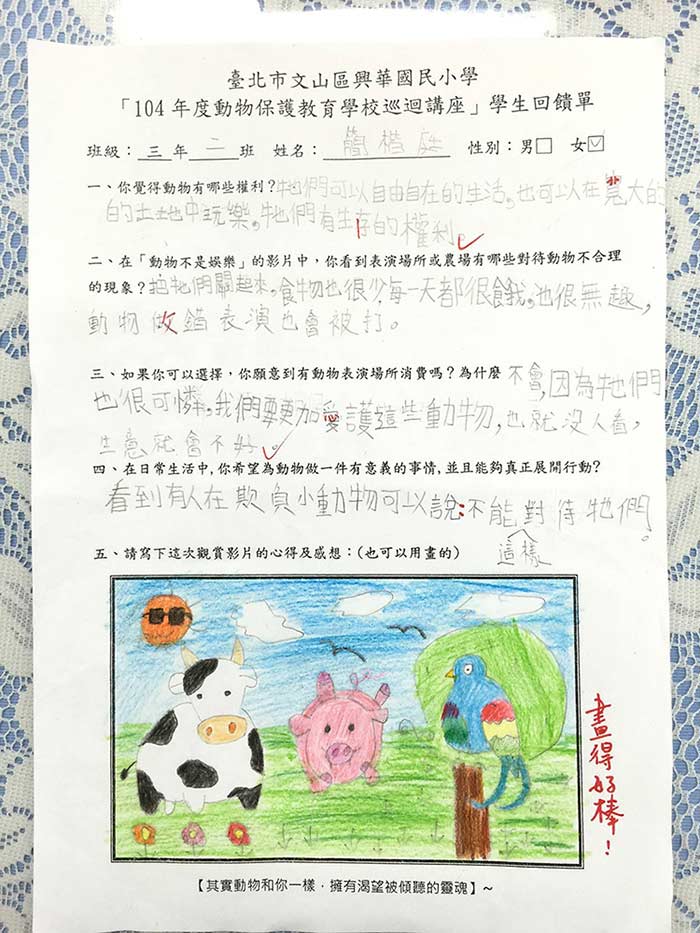 臺北市文山區興華國民小學
「104 年度動物保護教育學校巡迴講座」學生回饋單
班級：三 年 二 班 姓名：簡楷庭 性別：男□ 女☑
一、你覺得動物有哪些權利？牠們可以自由自在的生活，也可以在寬大的
的土地中玩樂，牠們有生存的權利。
二、在「動物不是娛樂」的影片中，你看到表演場所或農場有哪些對待動物不合理
的現象？把牠們關起來，食物也很少每一天都很餓，也很無趣，
動物做錯表演也會被打。
三、如果你可以選擇，你願意到有動物表演場所消費嗎？為什麼 不會，因為牠們
也很可憐，我們要更加愛護這些動物，也就沒人看，
生意就會不好。
四、在日常生活中，你希望為動物做一件有意義的事情，並且能夠真正展開行動？
看到有人在欺負小動物可以說：不能對待牠們！
這樣
五、請寫下這次觀賞影片的心得及感想：(也可以用畫的)
畫得好棒！
【其實動物和你一樣，擁有渴望被傾聽的靈魂】～